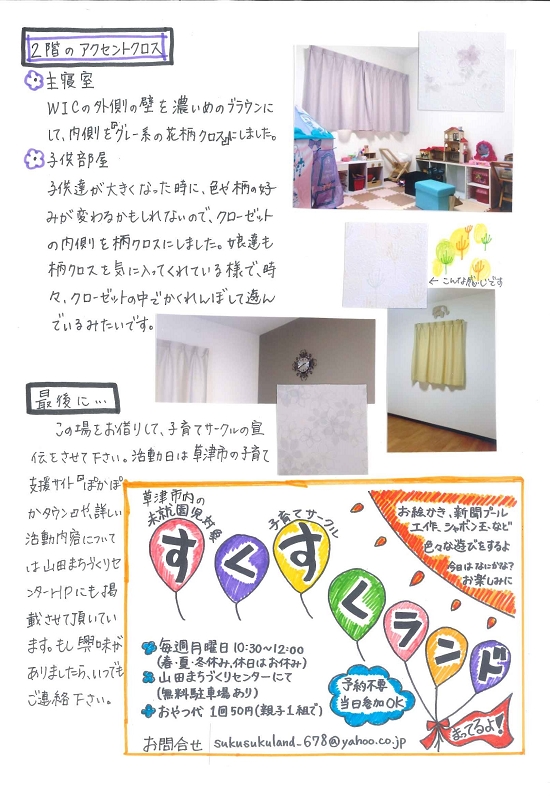 2階のアクセントクロス
主寝室
WICの外側の壁を濃いめのブラウンに
して、内側を『グレー系の花柄クロス』にしました。
子供部屋
子供達が大きくなった時に、色や柄の好
みが変わるかもしれないので、クローゼット
の内側を柄クロスにしました。娘達も
柄クロスを気に入ってくれている様で、時
々、クローゼットの中でかくれんぼして遊ん
でいるみたいです。
←こんな感じです
最後に…
この場をお借りして、子育てサークルの宣
伝をさせて下さい。活動日は草津市の子育て
支援サイト『ぽかぽ
かタウン』や、詳しい
活動内容について
は山田まちづくりセ
ンターHPにも掲
載させて頂いてい
ます。もし興味が
ありましたら、いつでも
ご連絡下さい。
草津市内の
未就園児対象
子育てサークル
すくすくランド
お絵かき、新聞プール
工作、シャボン玉・など
色々な遊びをするよ
今日はなにかな?
お楽しみに
毎週月曜日10:30~12:00
(春・夏・冬休み、休日はお休み)
山田まちづくりセンターにて
(無料駐車場あり)
おやつ代 1回50円(親子1組で)
予約不要
当日参加OK
まってるよ!
お問合せ sukusukuland_678@yahoo.co.jp